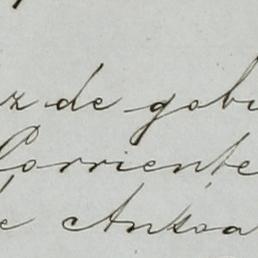 z de gobi
Corriente
e Antoa